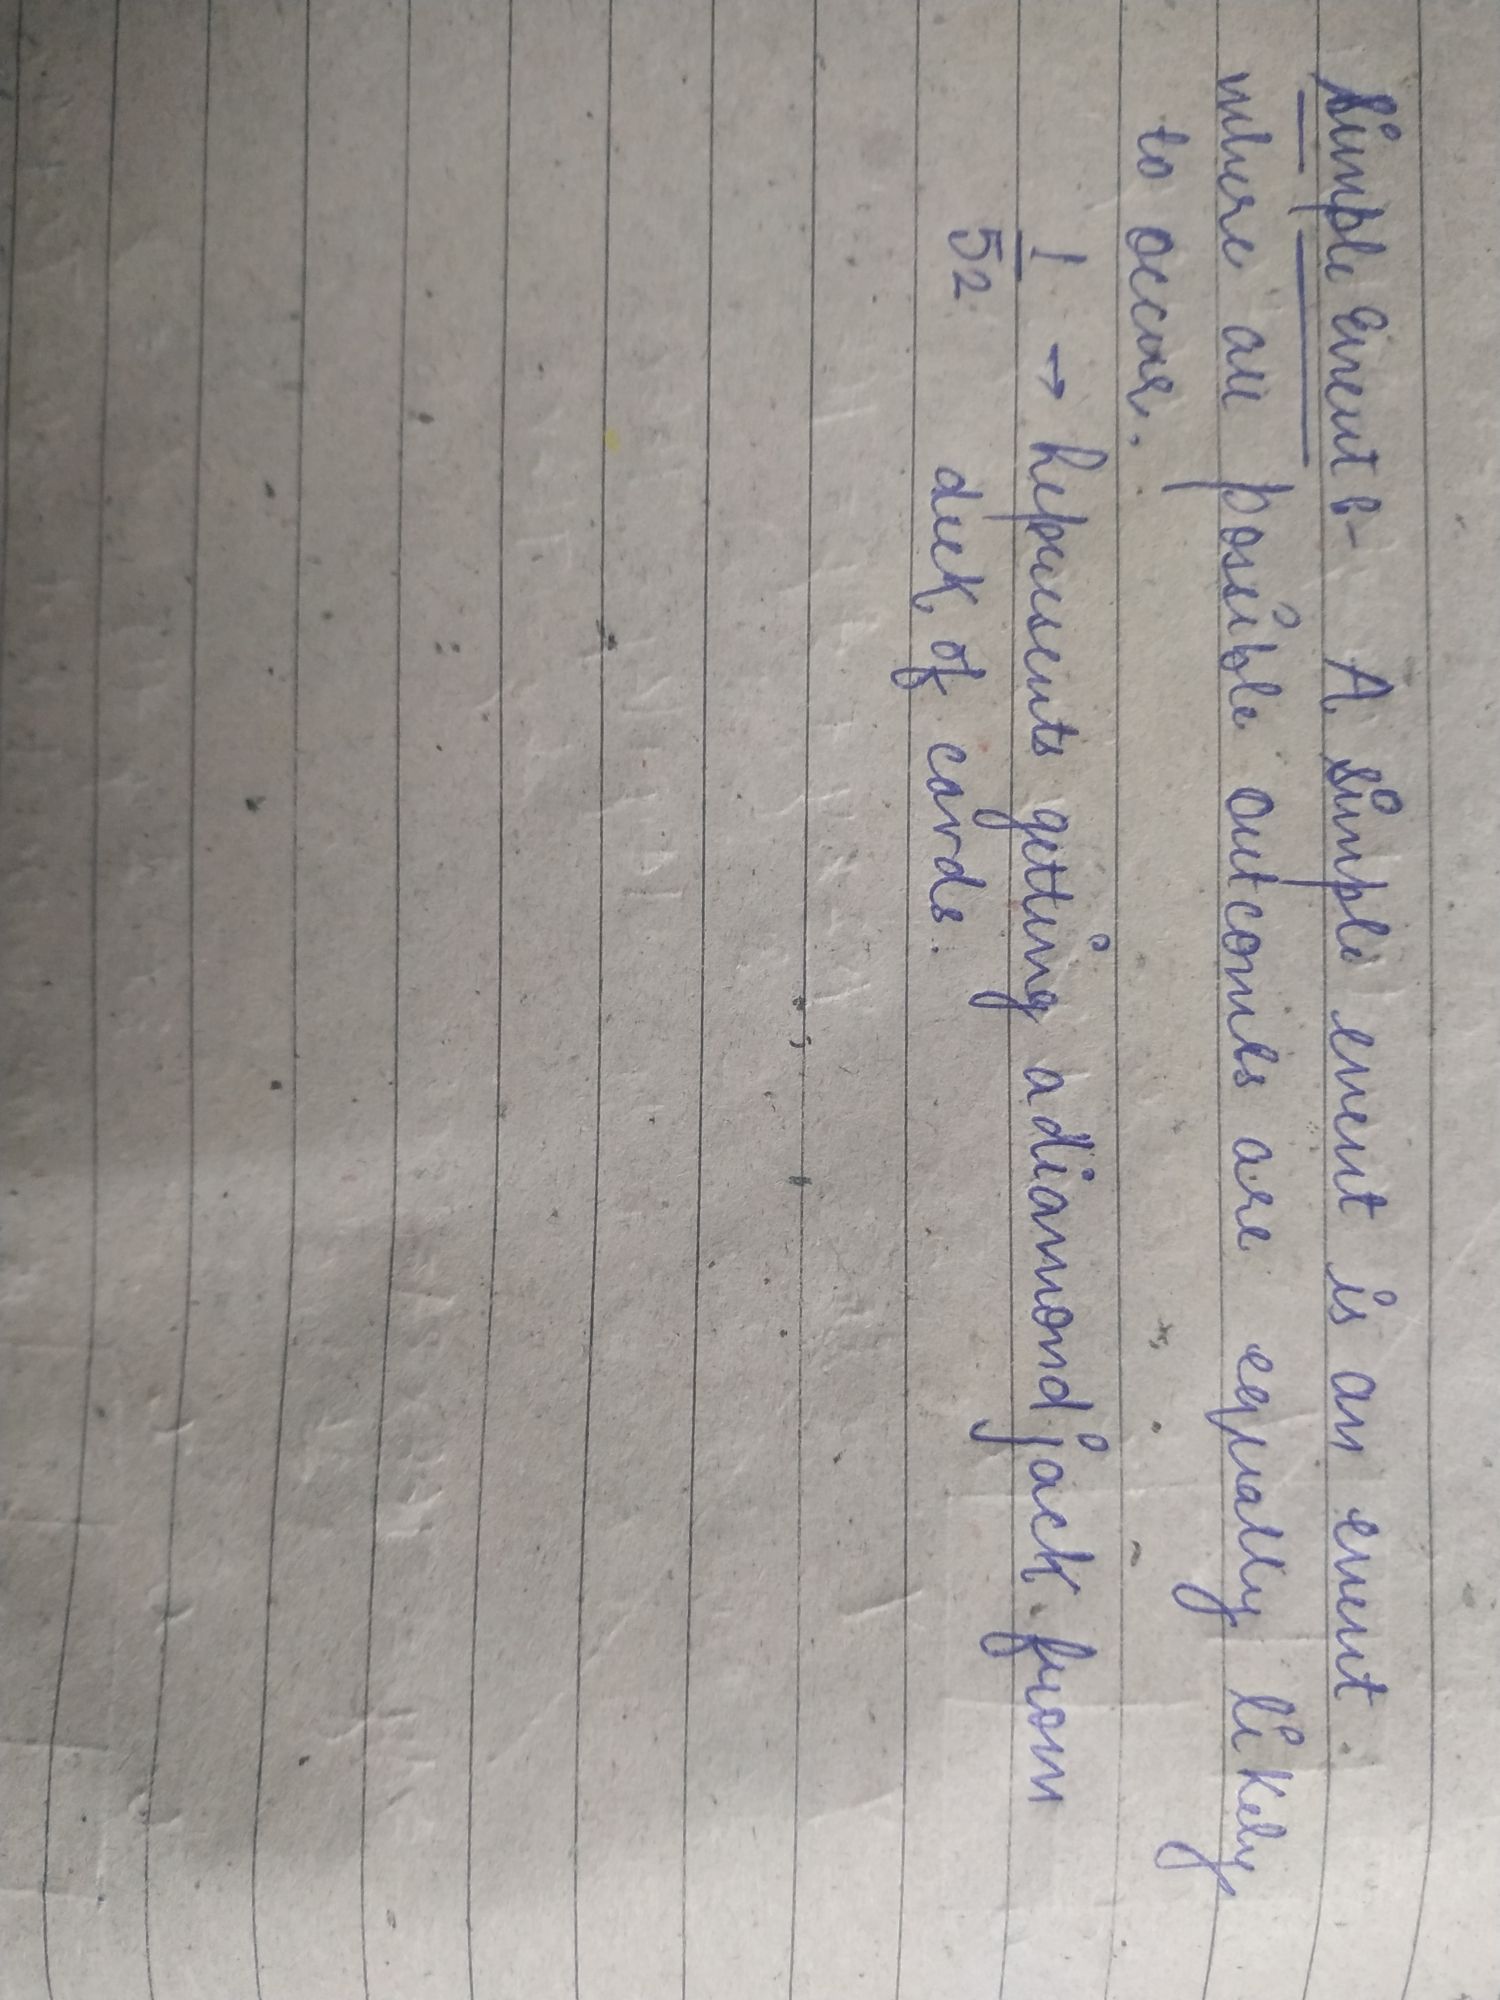 Simple event :- A simple event is an event
where all possible outcomes are equally likely
to occur.
1/52 → Represents getting a diamond jack from
deck of cards.